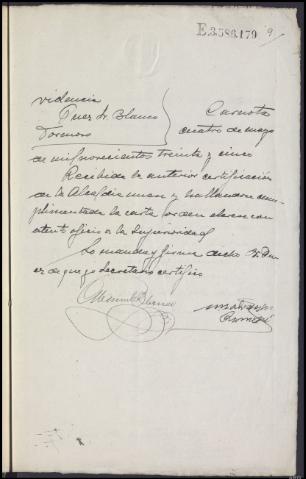 E.3586.179 9
videncia
Juez Sr. Blanco
Carnota
cuatro de mayo
de mil novecientos treinta y cinco
Recibida la anterior certificación
de la Alcaldia y hallandose cum-
plimentada la carta orden con
atento oficio a la Superioridad
Lo manda y firma dicho Sr. Ju
ez de que yo Secretario certifico
Manuel Blanco